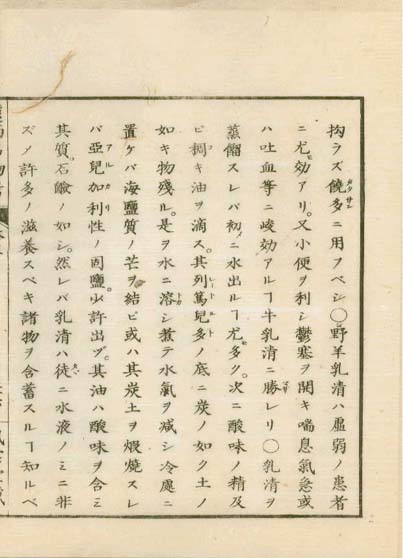 拘ラズ饒多ニ用フベシ〇野羊乳清ハ虚弱ノ患者
ニ尤モ効アリ。又小便ヲ利シ鬱塞ヲ開キ喘息氣急或
ハ吐血等ニ峻効アルヿ牛乳清ニ勝レリ〇乳清ヲ
蒸餾スレバ初メニ水出ルヿ尤多ク。次ニ酸味ノ精及
ビ稠キ油ヲ滴ス。其列篤兒多ノ底ニ炭ノ如ク土ノ
如キ物殘ル。是ヲ水ニ溶シ煮テ水氣ヲ减シ冷處ニ
置ケバ海鹽質ノ芒ヲ結ビ或ハ其炭土ヲ煆燒スレ
バ亞兒加利性ノ固鹽。少許出ヅ。其油ハ酸味ヲ含ミ
其質。石鹼ノ如シ。然レバ乳清ハ徒ニ水液ノミニ非
ズメ許多ノ滋養スベキ諸物ヲ含蓄スルヿ知ルベ